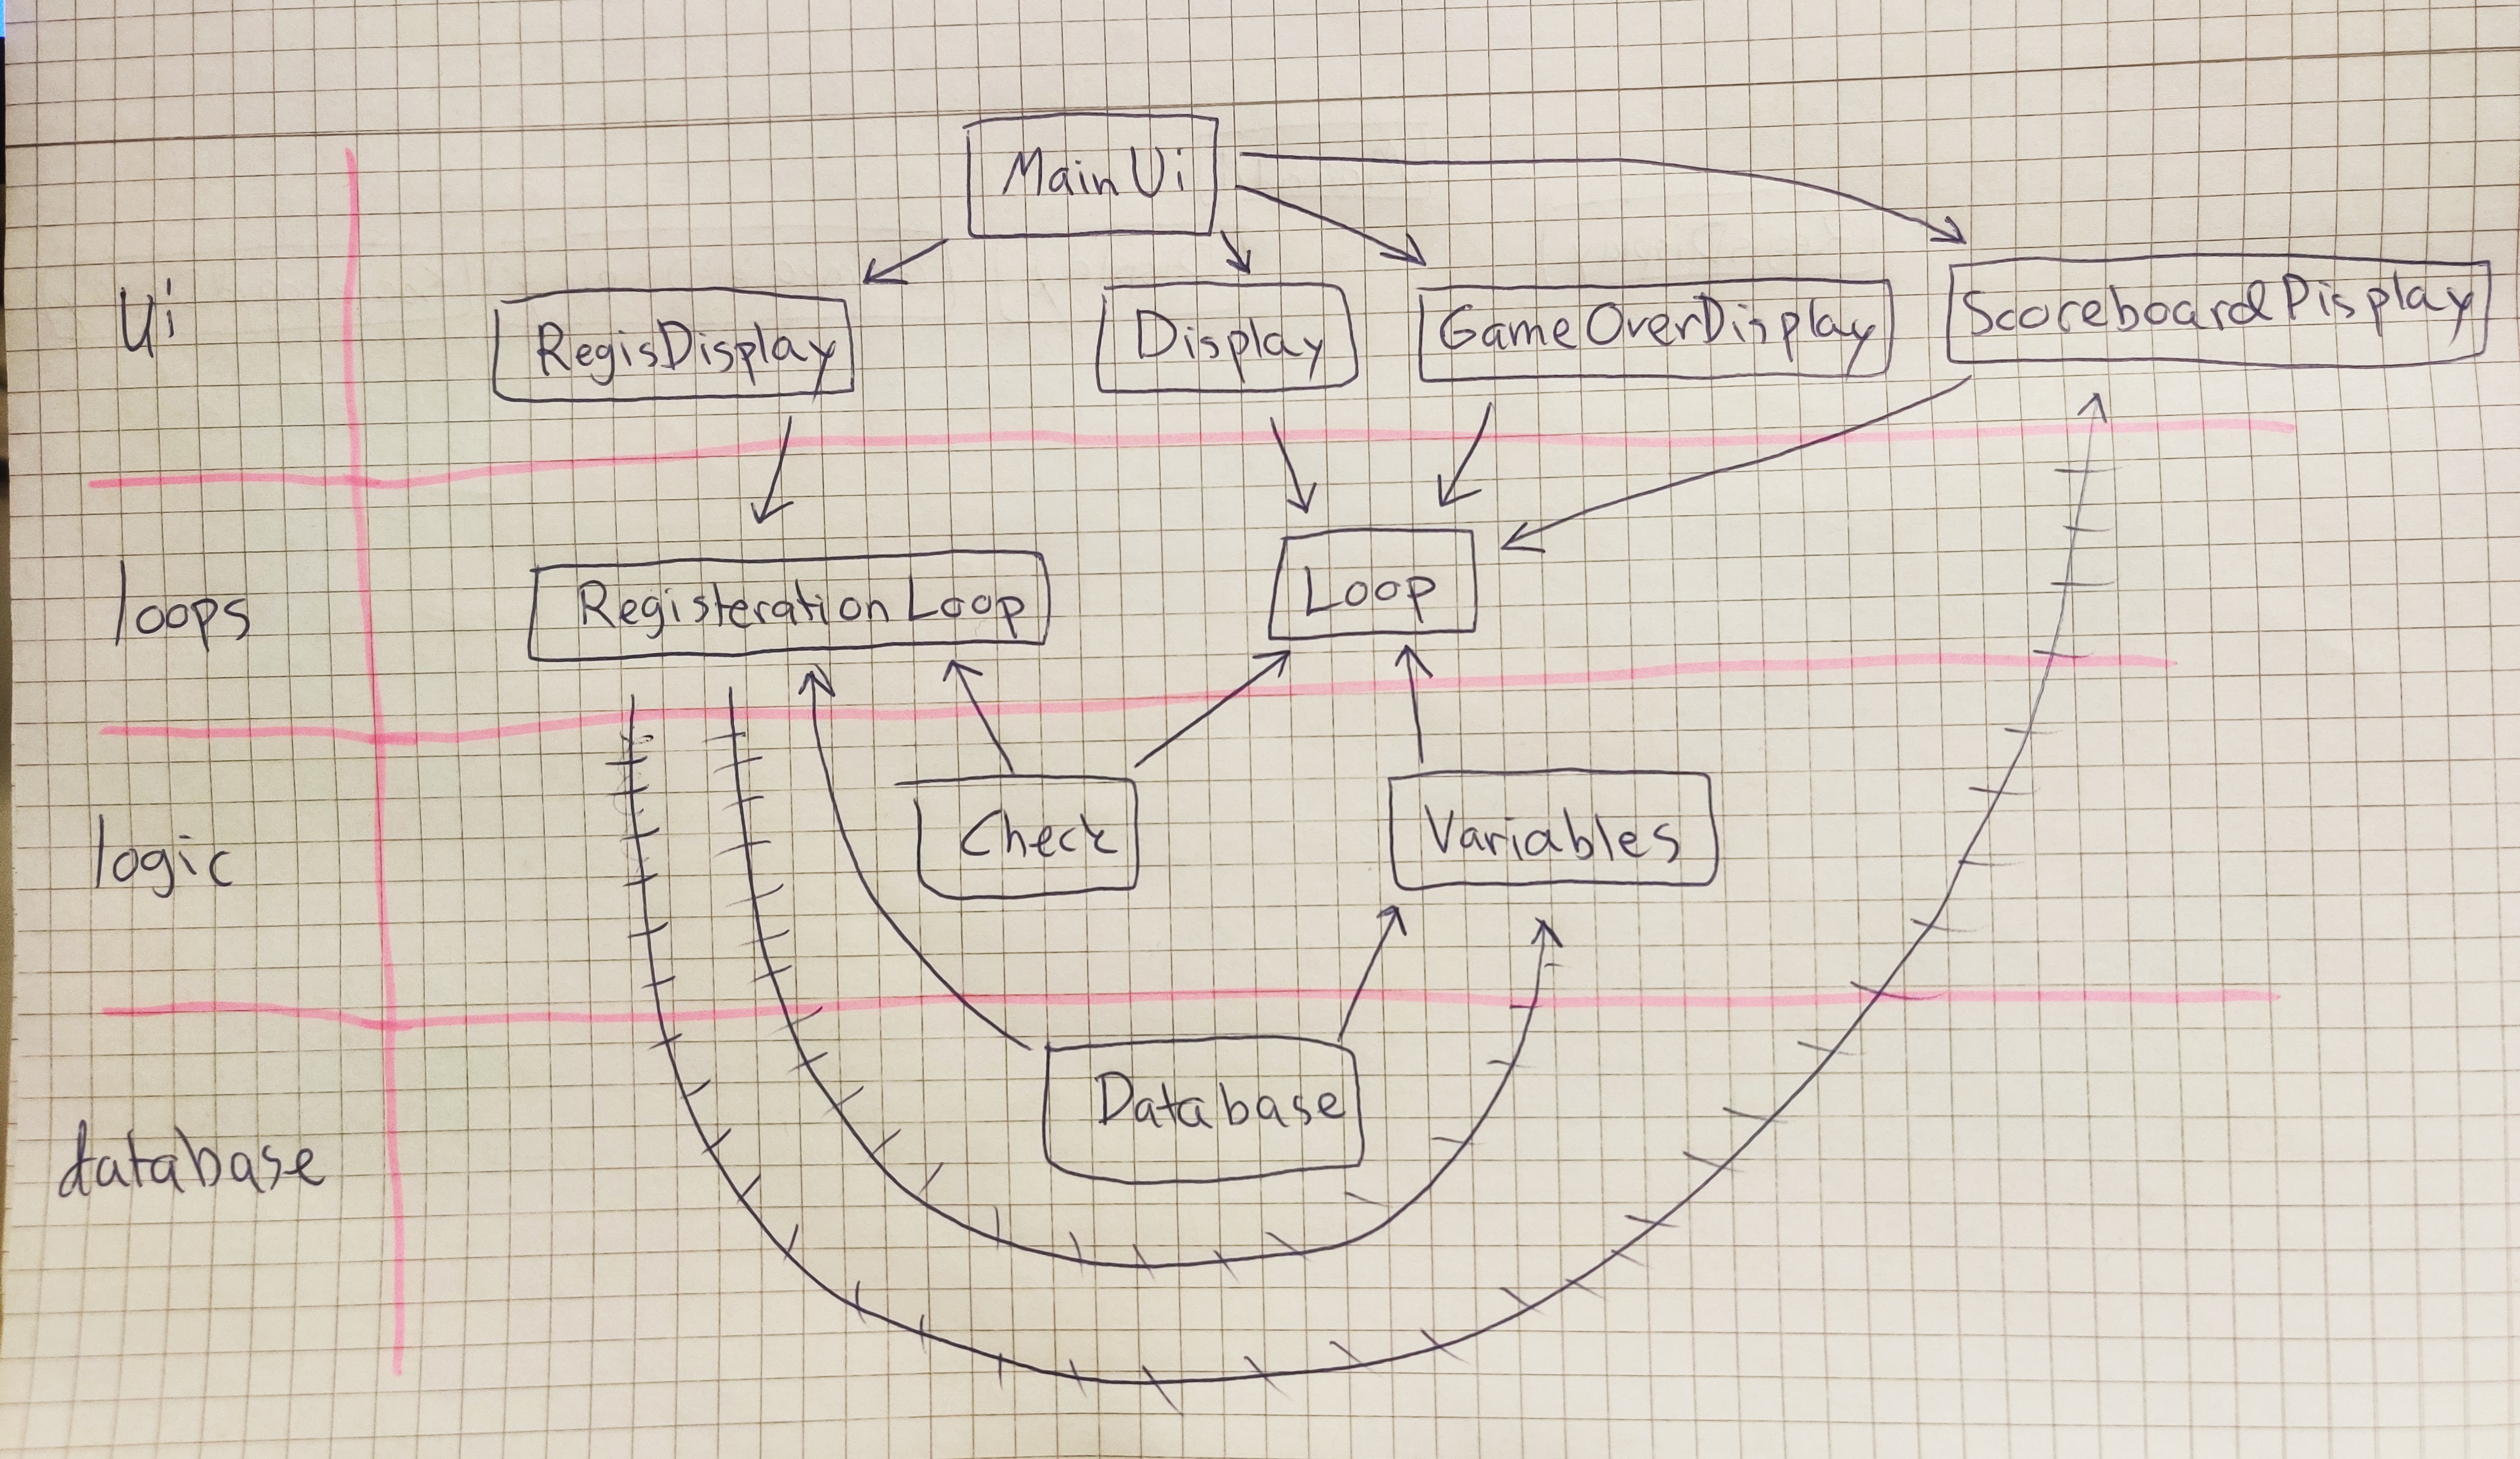 Main Ui
Ui
RegisDisplay
Display
GameOverDisplay
ScoreboardDisplay
loops
Registeration Loop
Loop
logic
Check
Variables
database
Database